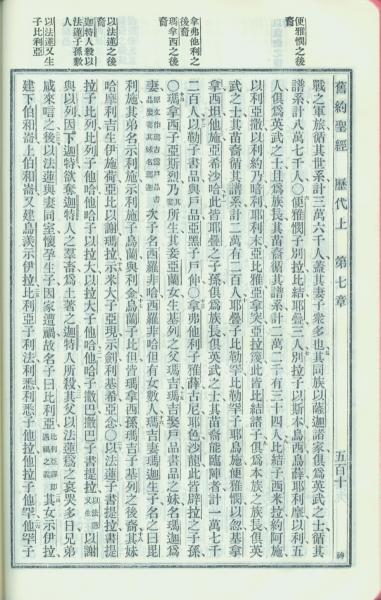 舊約聖經　歷代上　第七章　五百十
戰之軍旅循其世系計三萬六千人蓋其妻子衆多也其同族以薩迦諸家俱爲英武之士循其
譜系計八萬七千人〇便雅憫子別拉比結耶疊三人別拉子以斯本烏西烏薛耶利摩以利五
人俱爲英武之士且爲族長其苗裔循其譜系計二萬二千有三十四人比結子西米拉約阿施
以利亞撒以利約乃暗利耶利末亞比雅亞拿突亞拉篾此皆比結諸子俱爲本族之族長俱英
武之士其苗裔循其譜系計二萬有二百人耶疊子比勒罕比勒罕子耶烏施便雅憫以忽基拿
拿西坦他施亞希沙哈此皆耶疊之子孫俱爲族長俱英武之士其苗裔能臨陣者計一萬七千
二百人以勒子書品與戶品亞黑子戶伸〇拿弗他利子雅薛古尼耶色沙龍此皆辟拉之子孫
〇瑪拿西子亞斯烈乃其所生其妾亞蘭女生基列之父瑪吉瑪吉娶戶品書品之妹名瑪迦爲
妻次子名西羅非哈西羅非哈但有女數人瑪吉妻瑪迦生子名之曰毘
利施其弟名示利施示利施子烏蘭與利金烏蘭子比但皆瑪拿西孫瑪吉子基列之後裔其妹
哈摩利吉生伊施荷亞比以謝瑪拉示米大子亞現示劍利基希亞念〇以法蓮子書提拉書提
拉子比列比列子他哈他哈子以拉大以拉大子他哈他哈子撒巴撒巴子書提拉以法蓮又生以謝
與以列因下迦特欲奪迦特人之羣畜爲土著之迦特人所殺其父以法蓮爲之哀哭多日兄弟
咸來唁之後以法蓮與妻同室懷孕生子因家遭禍故名子曰比利亞比利亞譯卽遇禍之義其女示伊拉
建下伯和崙上伯和崙又建烏羨示伊拉比利亞子利法利悉利悉子他拉他拉子他罕他罕子
便雅憫之後裔
拿弗他利之後裔
瑪拿西之後裔
以法蓮之後裔
迦特人殺以法蓮子孫數人
以法蓮又生子比利亞